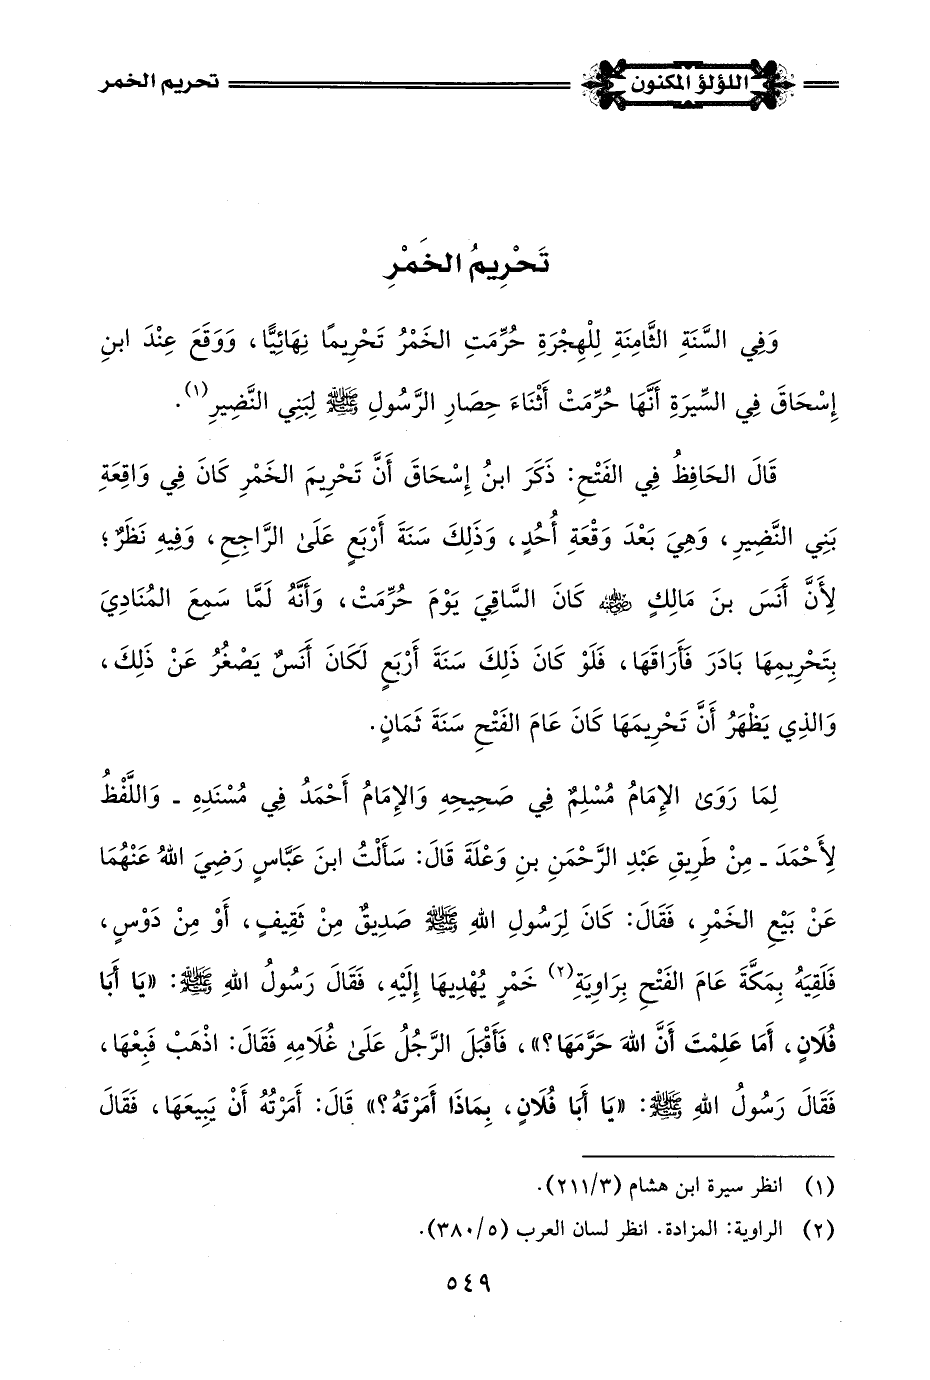 اللؤلؤ المكنون تحريم الخمر
تَحْرِيمُ الخَمْرِ
وَفِي السَّنَةِ الثَّامِنَةِ لِلْهِجْرَةِ حُرِّمَتِ الخَمْرُ تَحْرِيمًا نِهَائِيًّا، وَوَقَعَ عِنْدَ ابنِ
إِسْحَاقَ فِي السِّيرَةِ أَنَّهَا حُرِّمَتْ أَثْنَاءَ حِصَارِ الرَّسُولِ ﷺ لِبَنِي النَّضِيرِ(١).
قَالَ الحَافِظُ فِي الفَتْحِ: ذَكَرَ ابنُ إِسْحَاقَ أَنَّ تَحْرِيمَ الخَمْرِ كَانَ فِي وَاقِعَةِ
بَنِي النَّضِيرِ، وَهِيَ بَعْدَ وَقْعَةِ أُحُدٍ، وَذَلِكَ سَنَةَ أَرْبَعٍ عَلَىٰ الرَّاجِحِ، وَفِيهِ نَظَرٌ؛
لِأَنَّ أَنَسَ بنَ مَالِكٍ رضي الله عنه كَانَ السَّاقِيَ يَوْمَ حُرِّمَتْ، وَأَنَّهُ لَمَّا سَمِعَ المُنَادِيَ
بِتَحْرِيمِهَا بَادَرَ فَأَرَاقَهَا، فَلَوْ كَانَ ذَلِكَ سَنَةَ أَرْبَعٍ لَكَانَ أَنَسٌ يَصْغُرُ عَنْ ذَلِكَ،
وَالذِي يَظْهَرُ أَنَّ تَحْرِيمَهَا كَانَ عَامَ الفَتْحِ سَنَةَ ثَمَانٍ.
لِمَا رَوَىٰ الإِمَامُ مُسْلِمٌ فِي صَحِيحِهِ وَالإِمَامُ أَحْمَدُ فِي مُسْنَدِهِ - وَاللَّفْظُ
لِأَحْمَدَ - مِنْ طَرِيقِ عَبْدِ الرَّحْمَنِ بنِ وَعْلَةَ قَالَ: سَأَلْتُ ابنَ عَبَّاسٍ رَضِيَ اللهُ عَنْهُمَا
عَنْ بَيْعِ الخَمْرِ، فَقَالَ: كَانَ لِرَسُولِ اللهِ ﷺ صَدِيقٌ مِنْ ثَقِيفٍ، أَوْ مِنْ دَوْسٍ،
فَلَقِيَهُ بِمَكَّةَ عَامَ الفَتْحِ بِرَاوِيَةِ(٢) خَمْرٍ يُهْدِيهَا إِلَيْهِ، فَقَالَ رَسُولُ اللهِ ﷺ: «يَا أَبَا
فُلَانٍ، أَمَا عَلِمْتَ أَنَّ اللهَ حَرَّمَهَا؟»، فَأَقْبَلَ الرَّجُلُ عَلَىٰ غُلَامِهِ فَقَالَ: اذْهَبْ فَبِعْهَا،
فَقَالَ رَسُولُ اللهِ ﷺ: «يَا أَبَا فُلَانٍ، بِمَاذَا أَمَرْتَهُ؟» قَالَ: أَمَرْتُهُ أَنْ يَبِيعَهَا، فَقَالَ
(١) انظر سيرة ابن هشام (٢١١/٣).
(٢) الراوية: المزادة. انظر لسان العرب (٣٨٠/٥).
٥٤٩